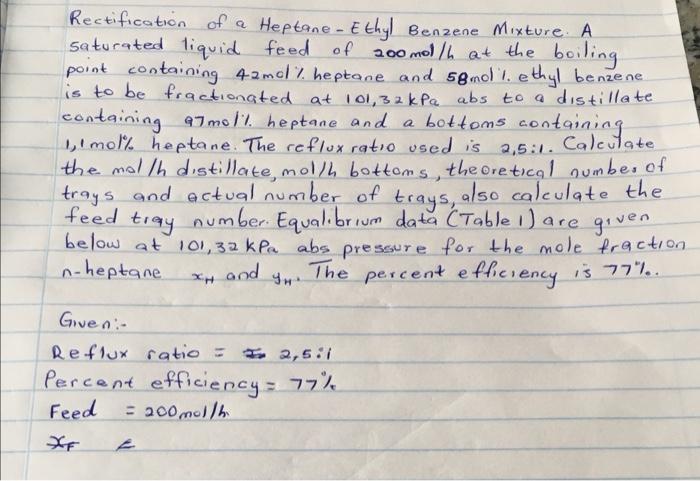 Rectification of a Heptane-Ethyl Benzene Mixture. A
saturated liquid feed of 200mol/h at the boiling
point containing 42mol% heptane and 58mol%. ethyl benzene
is to be fractionated at 101,32kPa abs to a distillate
containing 97mol% heptane and a bottoms containing
1,1mol% heptane. The reflux ratio used is 2,5:1. Calculate
the mol/h distillate, mol/h bottoms, theoretical number of
trays and actual number of trays, also calculate the
feed tray number. Equalibrium data (Table 1) are given
below at 101,32 kPa abs pressure for the mole fraction
n-heptane xH and yH. The percent efficiency is 77%.
Given:-
Reflux ratio = 2,5:1
Percent efficiency = 77%
Feed = 200mol/h
xF =